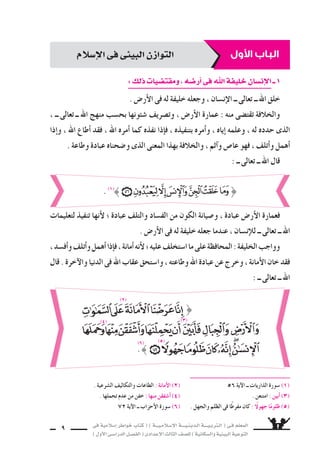 الباب الأول
التوازن البيئى فى الإسلام
١ - الإنسان خليفة الله فى أرضه ، ومقتضيات ذلك :
خلق الله - تعالى - الإنسان ، وجعله خليفة له فى الأرض .
والخلافة تقتضى منه : عمارة الأرض ، وتصريف شئونها بحسب منهج الله - تعالى - ،
الذى حدده له ، وعلمه إياه ، وأمره بتنفيذه ، فإذا نفذه كما أمره الله ، فقد أطاع الله ، وإذا
أهمل وأتلف ، فهو عاص وآثم ، والخلافة بهذا المعنى الذى وضحناه عبادة وطاعة .
قال الله - تعالى - :
﴿ وَمَا خَلَقْتُ الْجِنَّ وَالْإِنسَ إِلَّا لِيَعْبُدُونِ ﴾ (١) .
فعمارة الأرض عبادة ، وصيانة الكون من الفساد والتلف عبادة ؛ لأنها تنفيذ لتعليمات
الله - تعالى - للإنسان ، عندما جعله خليفة له فى الأرض .
وواجب الخليفة : المحافظة على ما استخلف عليه ؛ لأنه أمانة ، فإذا أهمل وأتلف وأفسد ،
فقد خان الأمانة ، وخرج عن عبادة الله وطاعته ، واستحق عقاب الله فى الدنيا والآخرة . قال
الله - تعالى - :
﴿ إِنَّا عَرَضْنَا الْأَمَانَةَ (٢) عَلَى السَّمَاوَاتِ
وَالْأَرْضِ وَالْجِبَالِ فَأَبَيْنَ (٣) أَن يَحْمِلْنَهَا وَأَشْفَقْنَ مِنْهَا (٤) وَحَمَلَهَا
الْإِنسَانُ إِنَّهُ كَانَ ظَلُومًا جَهُولًا (٥) ﴾ (٦) .
(١) سورة الذاريات - الآية ٥٦
(٢) الأمانة : الطاعات والتكاليف الشرعية .
(٣) أبين : امتنعن .
(٤) أشفقن منها : خفن من عدم تحملها .
(٥) ظلومًا جهولًا : كان مفرطًا فى الظلم والجهل .
(٦) سورة الأحزاب - الآية ٧٢
المعلم فى : ( التربيــة الدينيــة الإسلاميــة ) ( كتاب خواطر إسلامية فى
التوعية البيئية والسكانية ) الصف الثالث الإعدادى ( الفصل الدراسى الأول )
٩